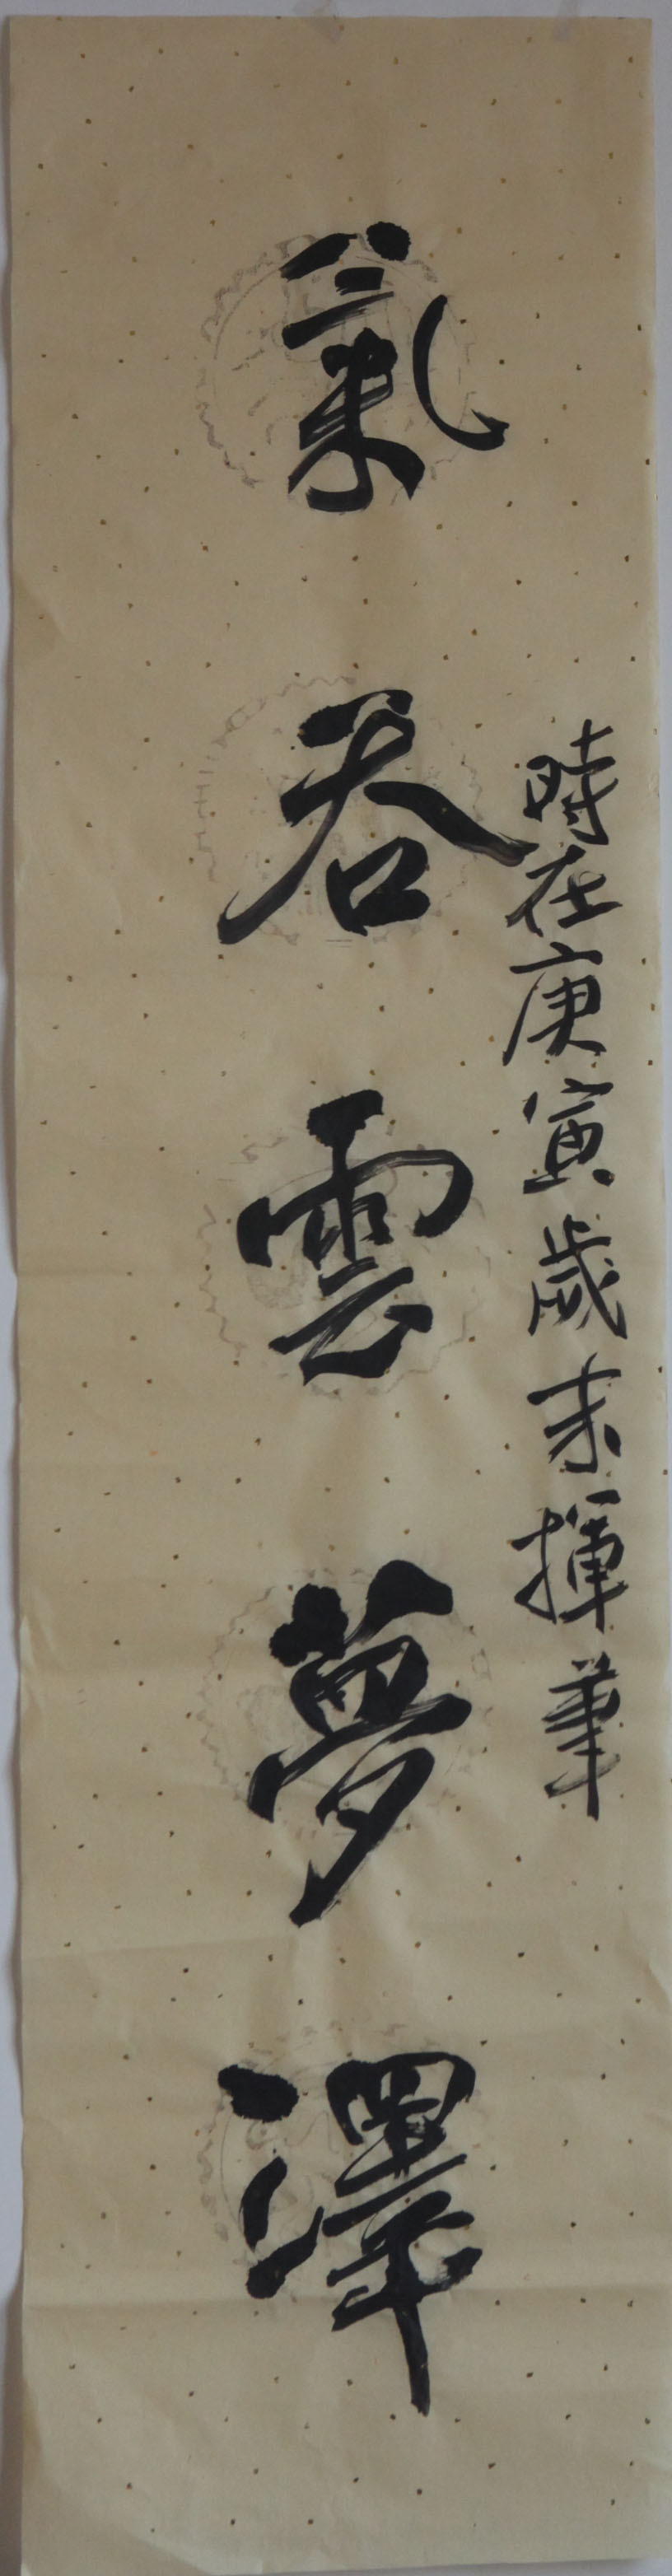 時在庚寅歲末揮筆
氣吞雲夢澤